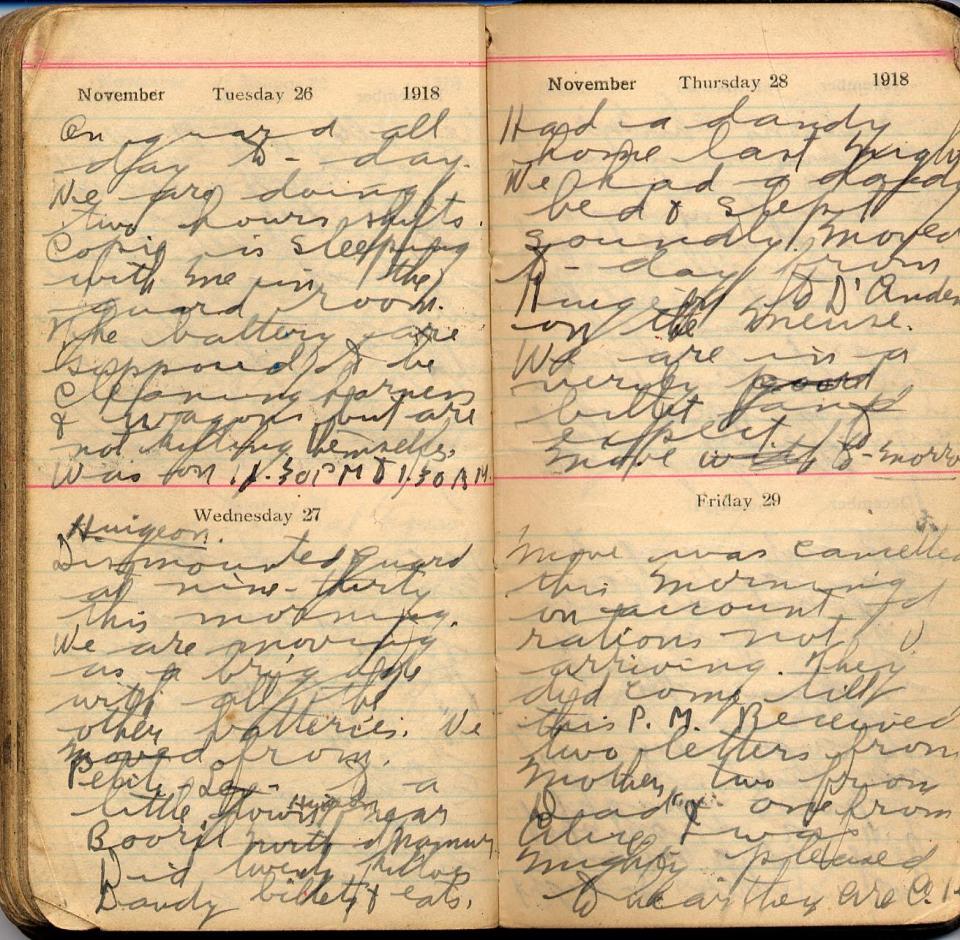 November Tuesday 26 1918
On guard all
day to-day.
We are doing
two hours shifts.
is sleeping
with me in the
guard room.
The battery are
supposed to be
cleaning harness
& wagons but are
not killing themselves.
Was on 11.30 PM to 1.30 AM.
Wednesday 27
Huigeon.
Dismounted guard
at nine-thirty
this morning.
We are moving
as a brigade
with all the
other batteries. We
moved from
Petit to a
little town Huigeon near
north of Namur
Did twenty kilos
Dandy billets & eats.
November Thursday 28 1918
Had a dandy
home last night
We had a dandy
bed & slept
soundly. Moved
to-day from
Huigeon to D'Anden
on the Meuse.
We are in a
very good
billet and
expect to
move to-morro
Friday 29
Move was cancelled
this morning
on account of
rations not
arriving. They
did come till
this P.M. Received
two letters from
Mother, two from
Dead & one from
I was
mighty pleased
to hear they are